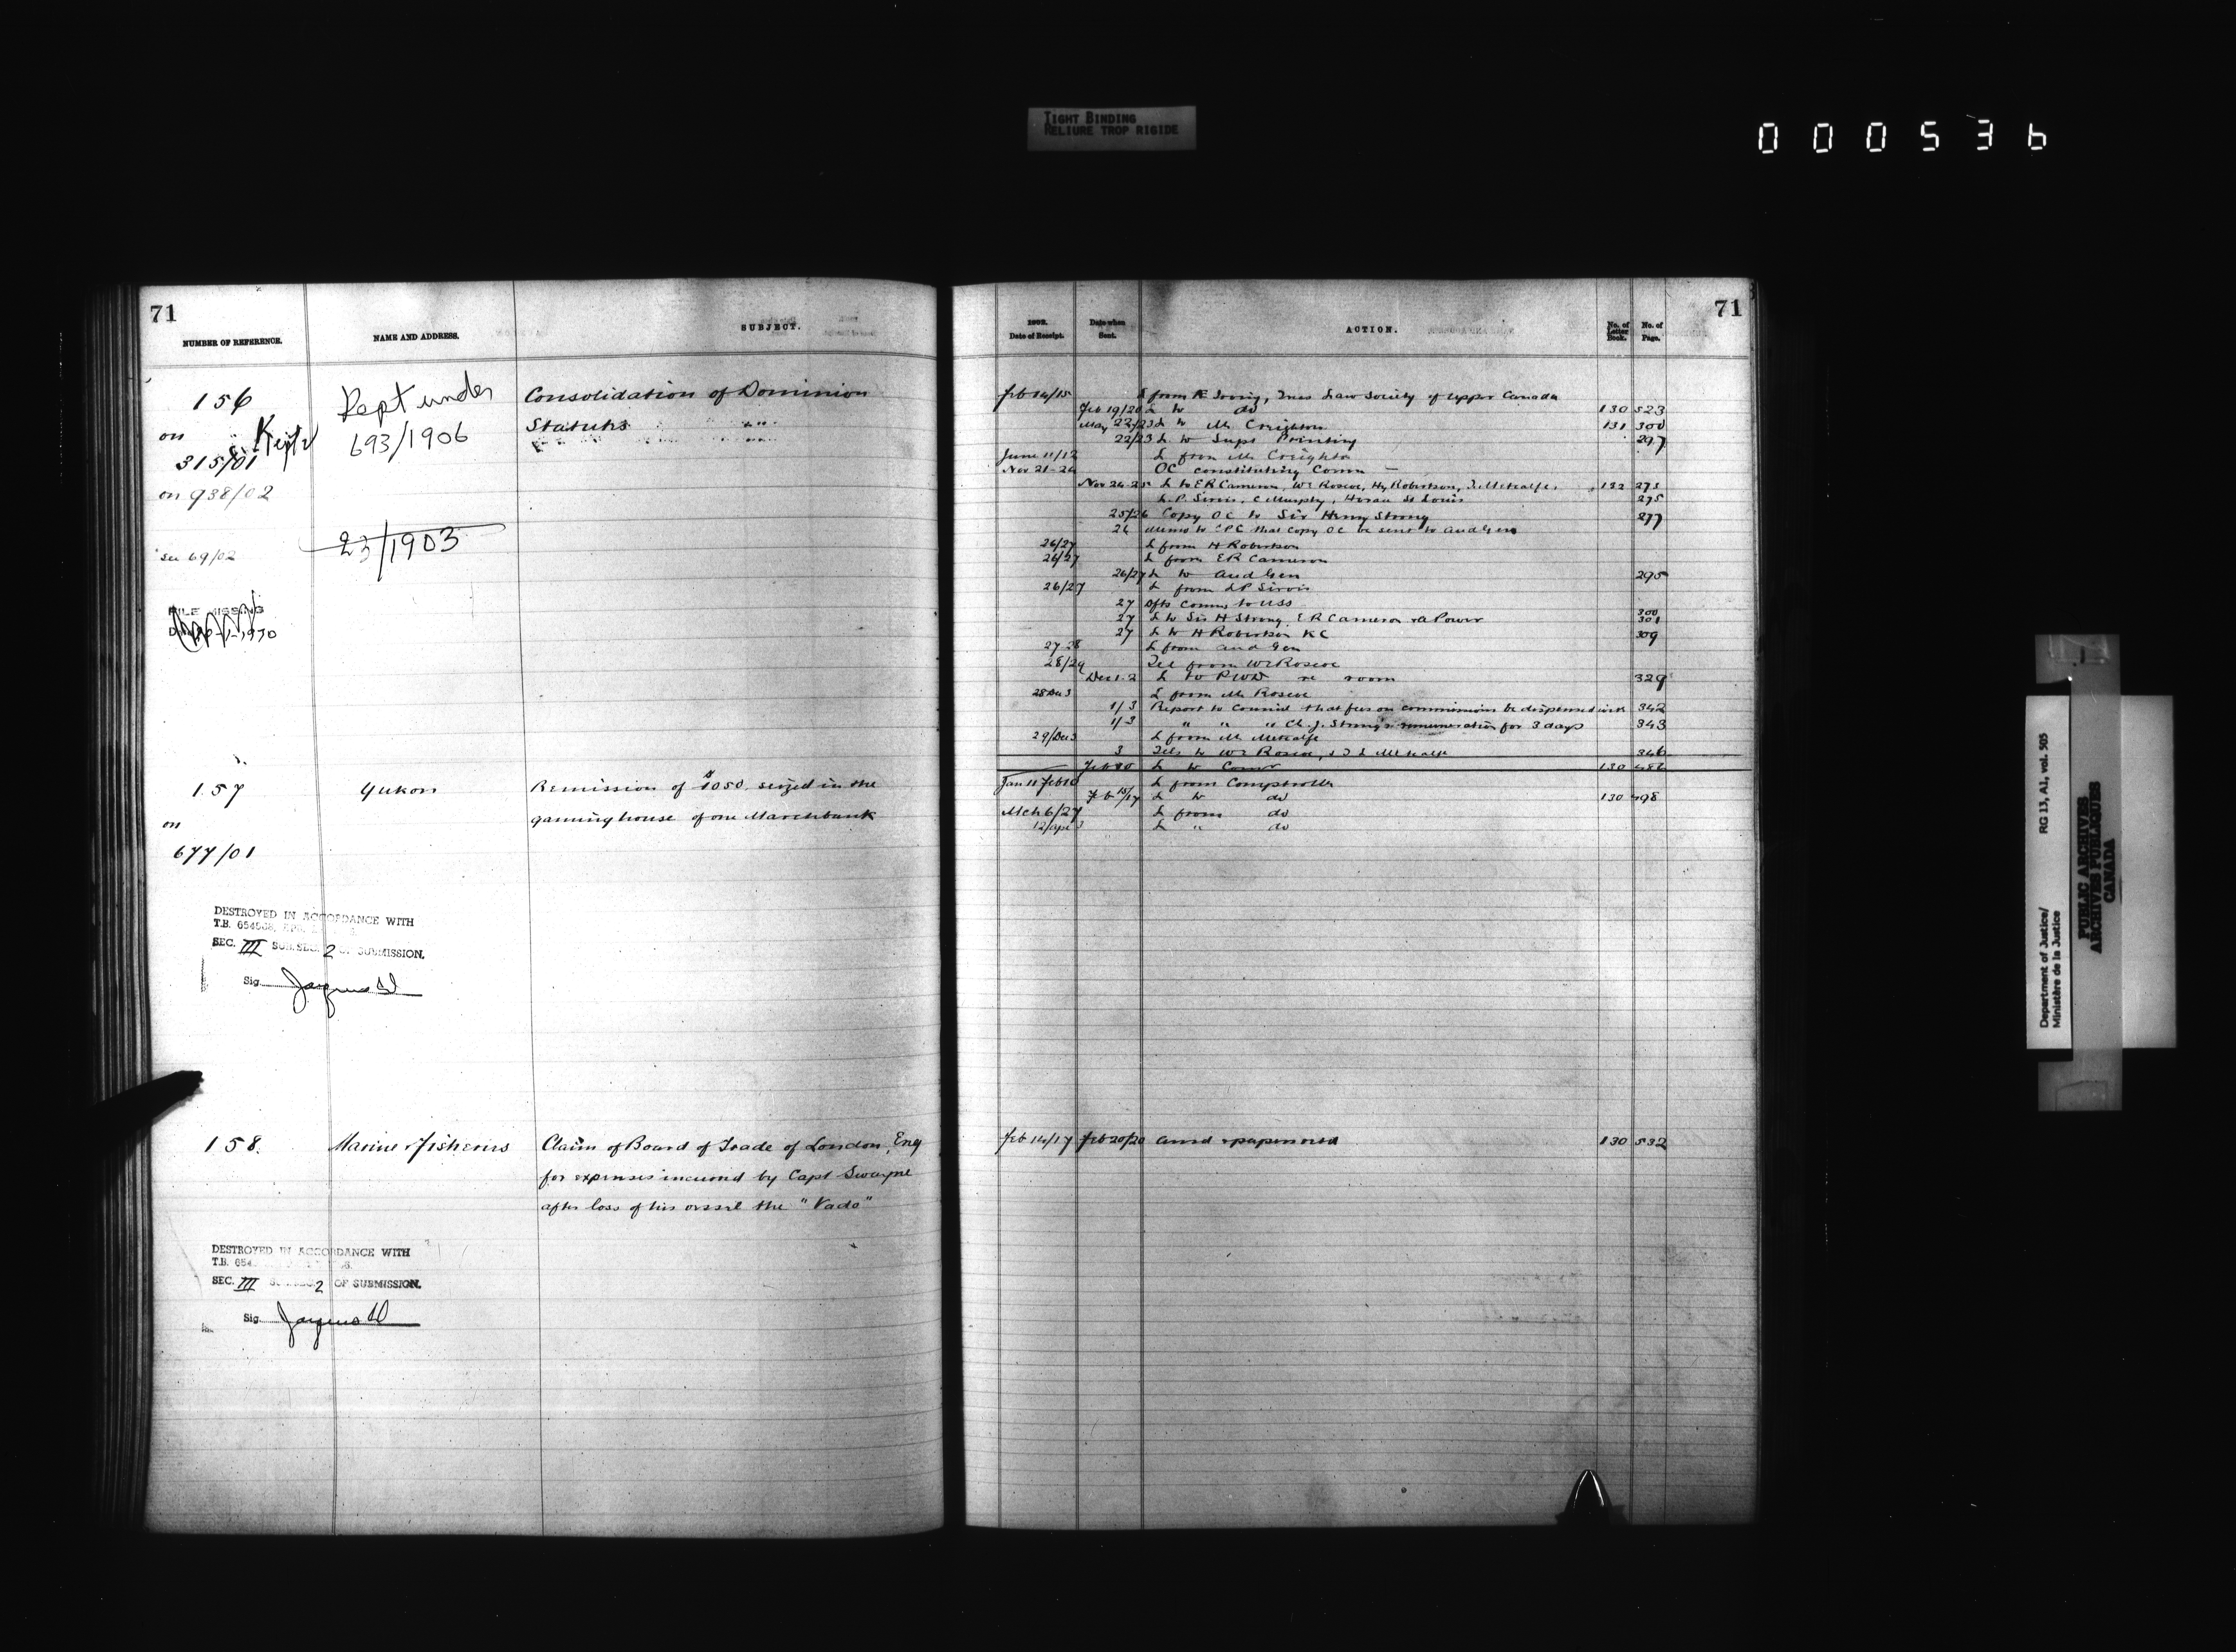 TIGHT BINDING
RELIURE TROP RIGIDE
000536
71
NUMBER OF REFERENCE.
NAME AND ADDRESS.
SUBJECT.
156
on
315/01
on 938/02
see 69/02
Kept under
693/1906
23/1903
Consolidation of Dominion
Statutes
FILE MISSING
157
on
677/01
Yukon
Remission of $1050. seized in the
gaming house of one Marchbank
DESTROYED IN ACCORDANCE WITH
T.B.
SEC. III SUBSEC. 2 OF SUBMISSION.
Sig.
158.
Marine & Fisheries
Claim of Board of Trade of London, Eng
for expenses incurred by Capt Swayne
after loss of his vessel the "Vado"
DESTROYED IN ACCORDANCE WITH
T.B. 654
SEC. III SUBSEC. 2 OF SUBMISSION.
Sig.
71
1902.
Date of Receipt.
Date when
Sent.
ACTION.
No. of
Letter
Book.
No. of
Page.
Feb 14/15 L from Æ Irving, Treas Law Society of Upper Canada
Feb 19/20 L to do 130 523
May 22/23 L to Mr Creighton 131 300
22/23 L to Supt Printing 297
June 11/12 L from Mr Creighton
Nov 21-24 OC constituting Comm
Nov 24-25 L to E R Cameron, W E Roscoe, Hy Robertson, T Metcalfe, 132 275
L. P. Sirois, C Murphy, Horace St Louis 275
25/26 Copy OC to Sir Henry Strong 277
26 Memo to CPC that copy OC be sent to Aud Gen
26/27 L from H Robertson
26/27 L from E R Cameron
26/27 L to Aud Gen 295
26/27 L from L P Sirois
27 Comms to USS
27 L to Sir H Strong, E R Cameron & A Power 300 301
27 L to H Robertson KC 309
27 28 L from Aud Gen
28/29 Tel from W E Roscoe
Dec 1-2 L to PWD re room 329
28 Dec 3 L from Mr Roscoe
1/3 Report to Council that fees on commissions be dispensed with 342
1/3 " " " Ch. J. Strong's remuneration for 3 days 343
29/Dec 3 L from Mr Metcalfe
3 Tels to W E Roscoe, & T L Metcalfe 346
L to Comr 130
Jan 11 Feb 10 L from Comptroller
Feb 15/17 L to do 130 498
Mch 6/27 L from do
12/Apr 3 L " do
Feb 14/17 Feb 20/20 Ansd & papers retd 130 532
Department of Justice/ RG 13, A1, vol. 505
Ministère de la Justice
PUBLIC ARCHIVES
ARCHIVES PUBLIQUES
CANADA